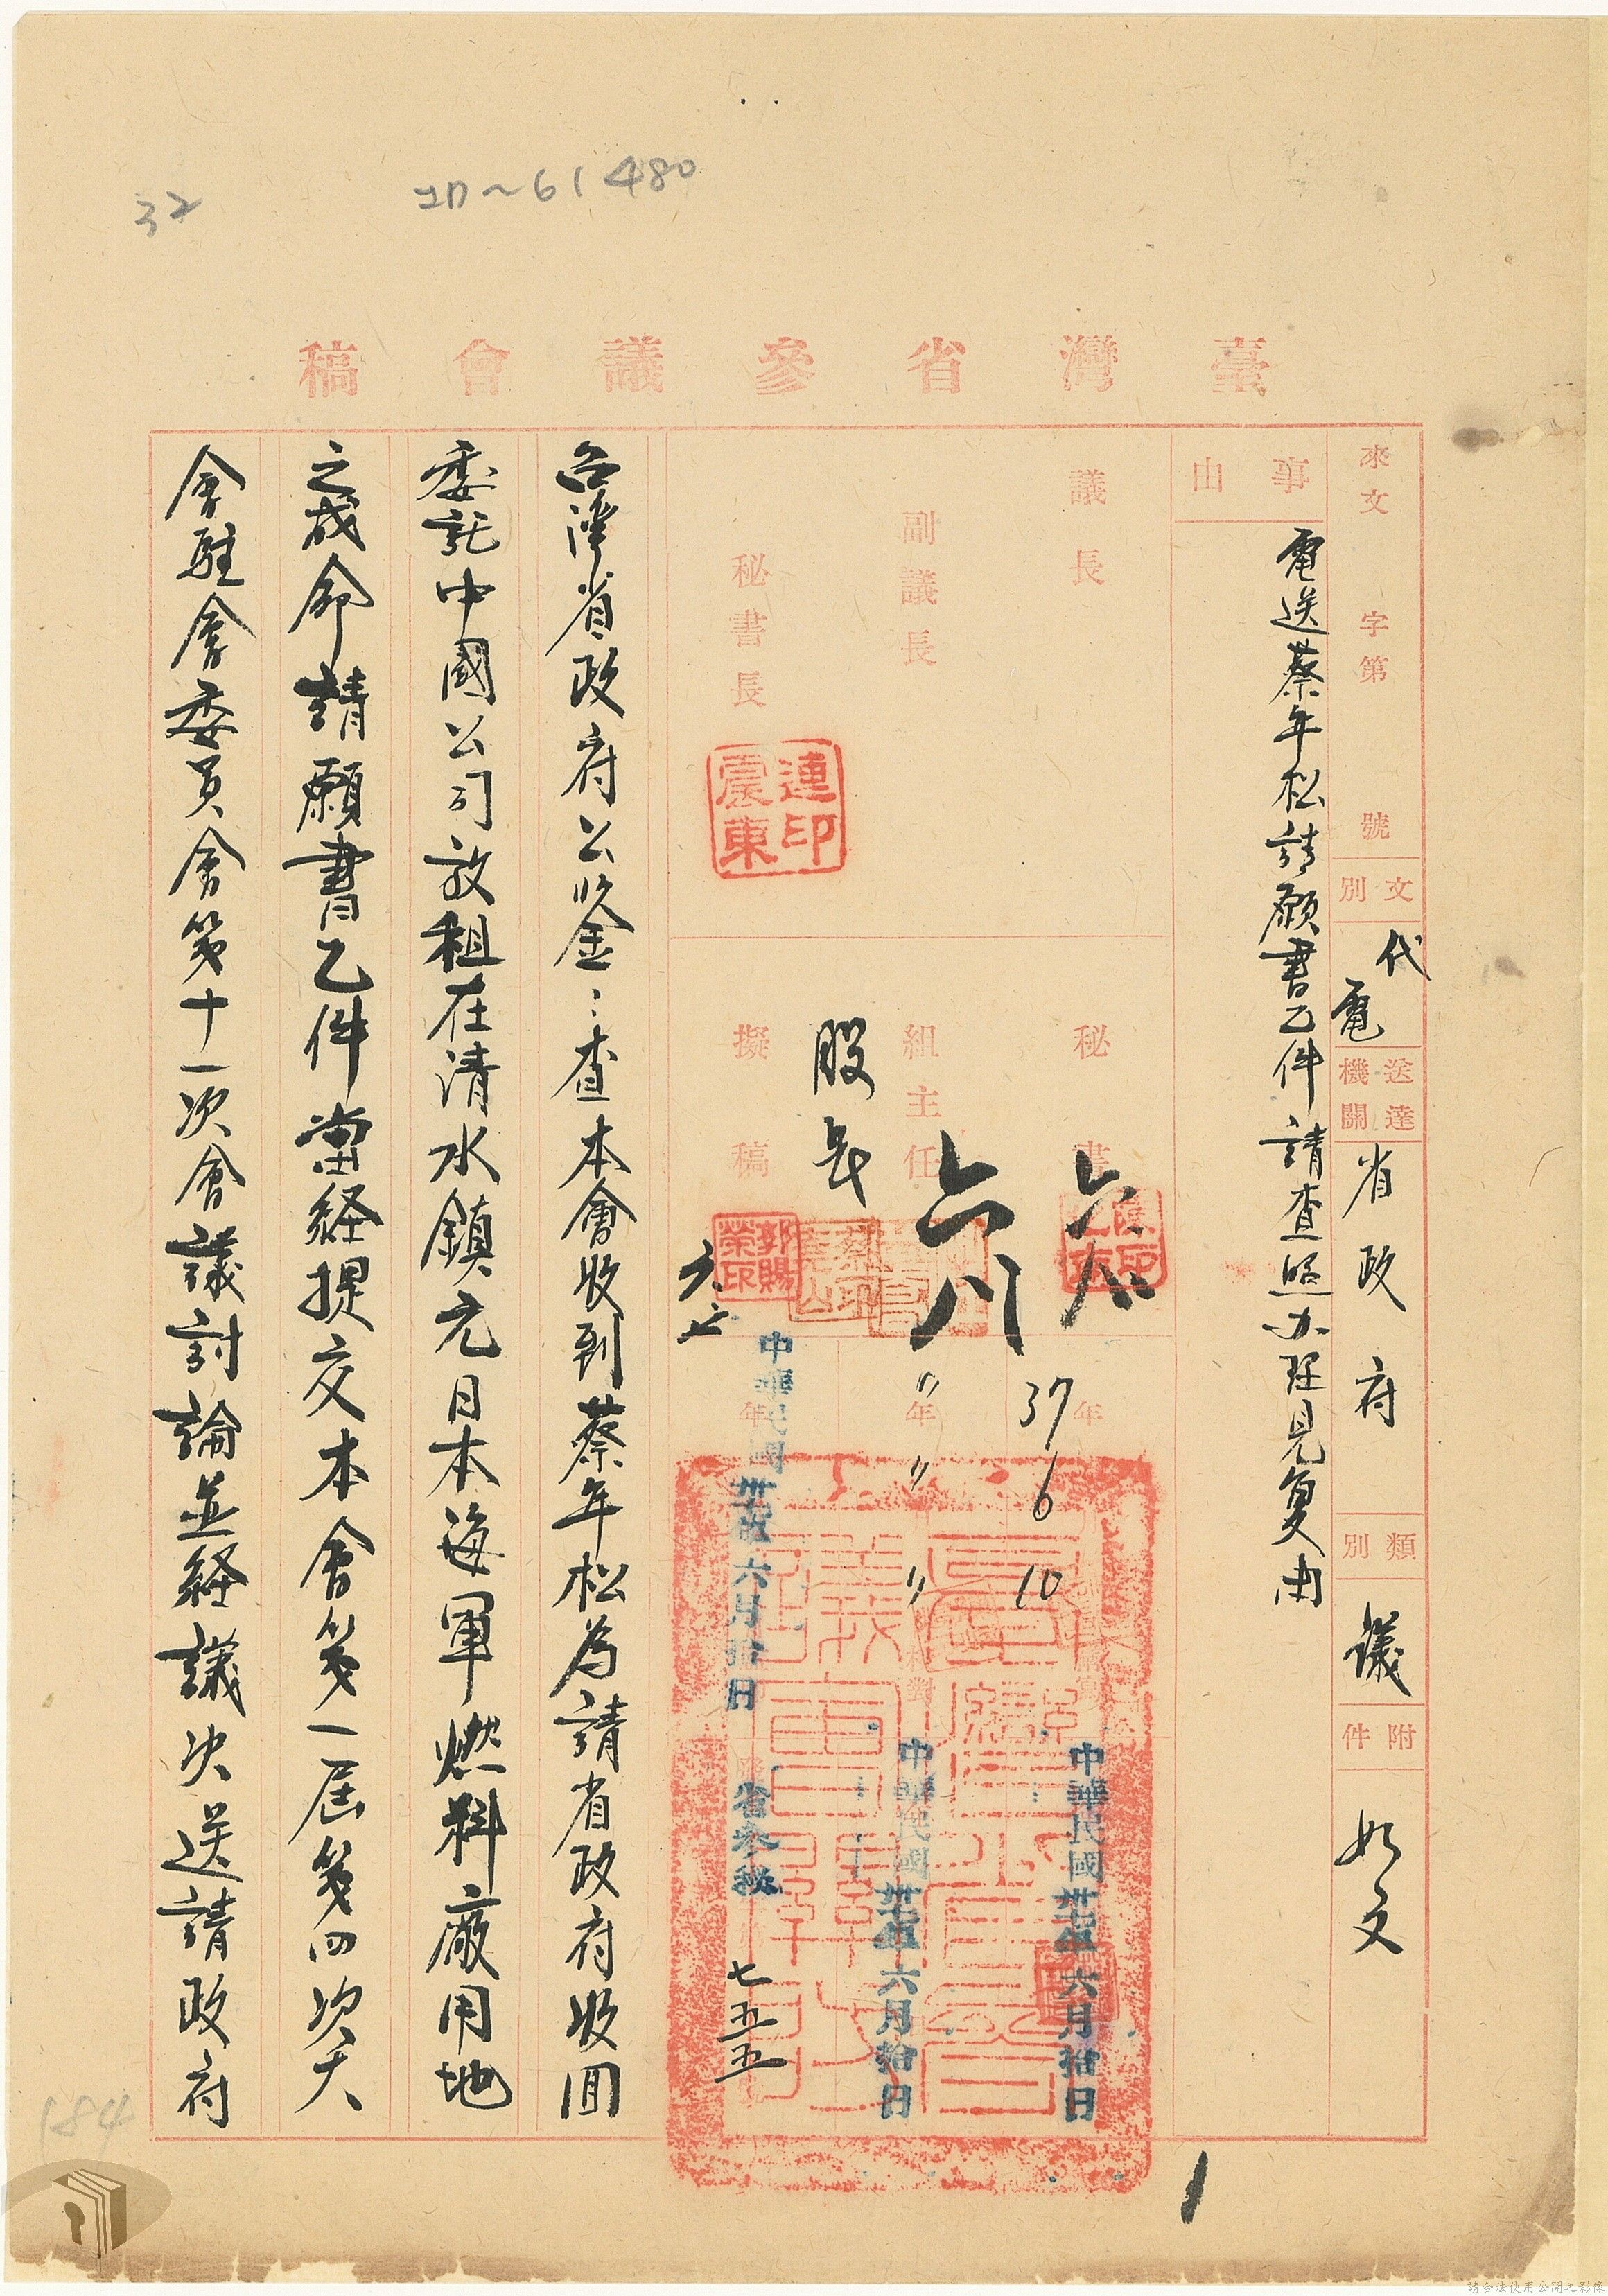 32
61480
臺灣省參議會稿
來文 字第 號
文別 代電
送達機關 省政府
類別 議
附件 如文
事由
電送蔡年松請願書乙件請查照办理見复由
議長
副議長
秘書長
連震東印
秘書
組主任
股長
擬稿
郭賜榮印
六七
37年6 10
〃年〃〃
年
中華民國卅七年六月拾日
中華民國卅七年六月拾日
中華民國卅七年六月拾日
省參秘
七五五
台灣省政府公鉴：查本會收到蔡年松為請省政府收回
委託中國公司放租在清水鎮元日本海軍燃料廠用地
之成命請願書乙件當経提交本會第一屆第四次大
會駐會委員會第十一次會議討論並経議決送請政府
1
184
請合法使用公開之影像